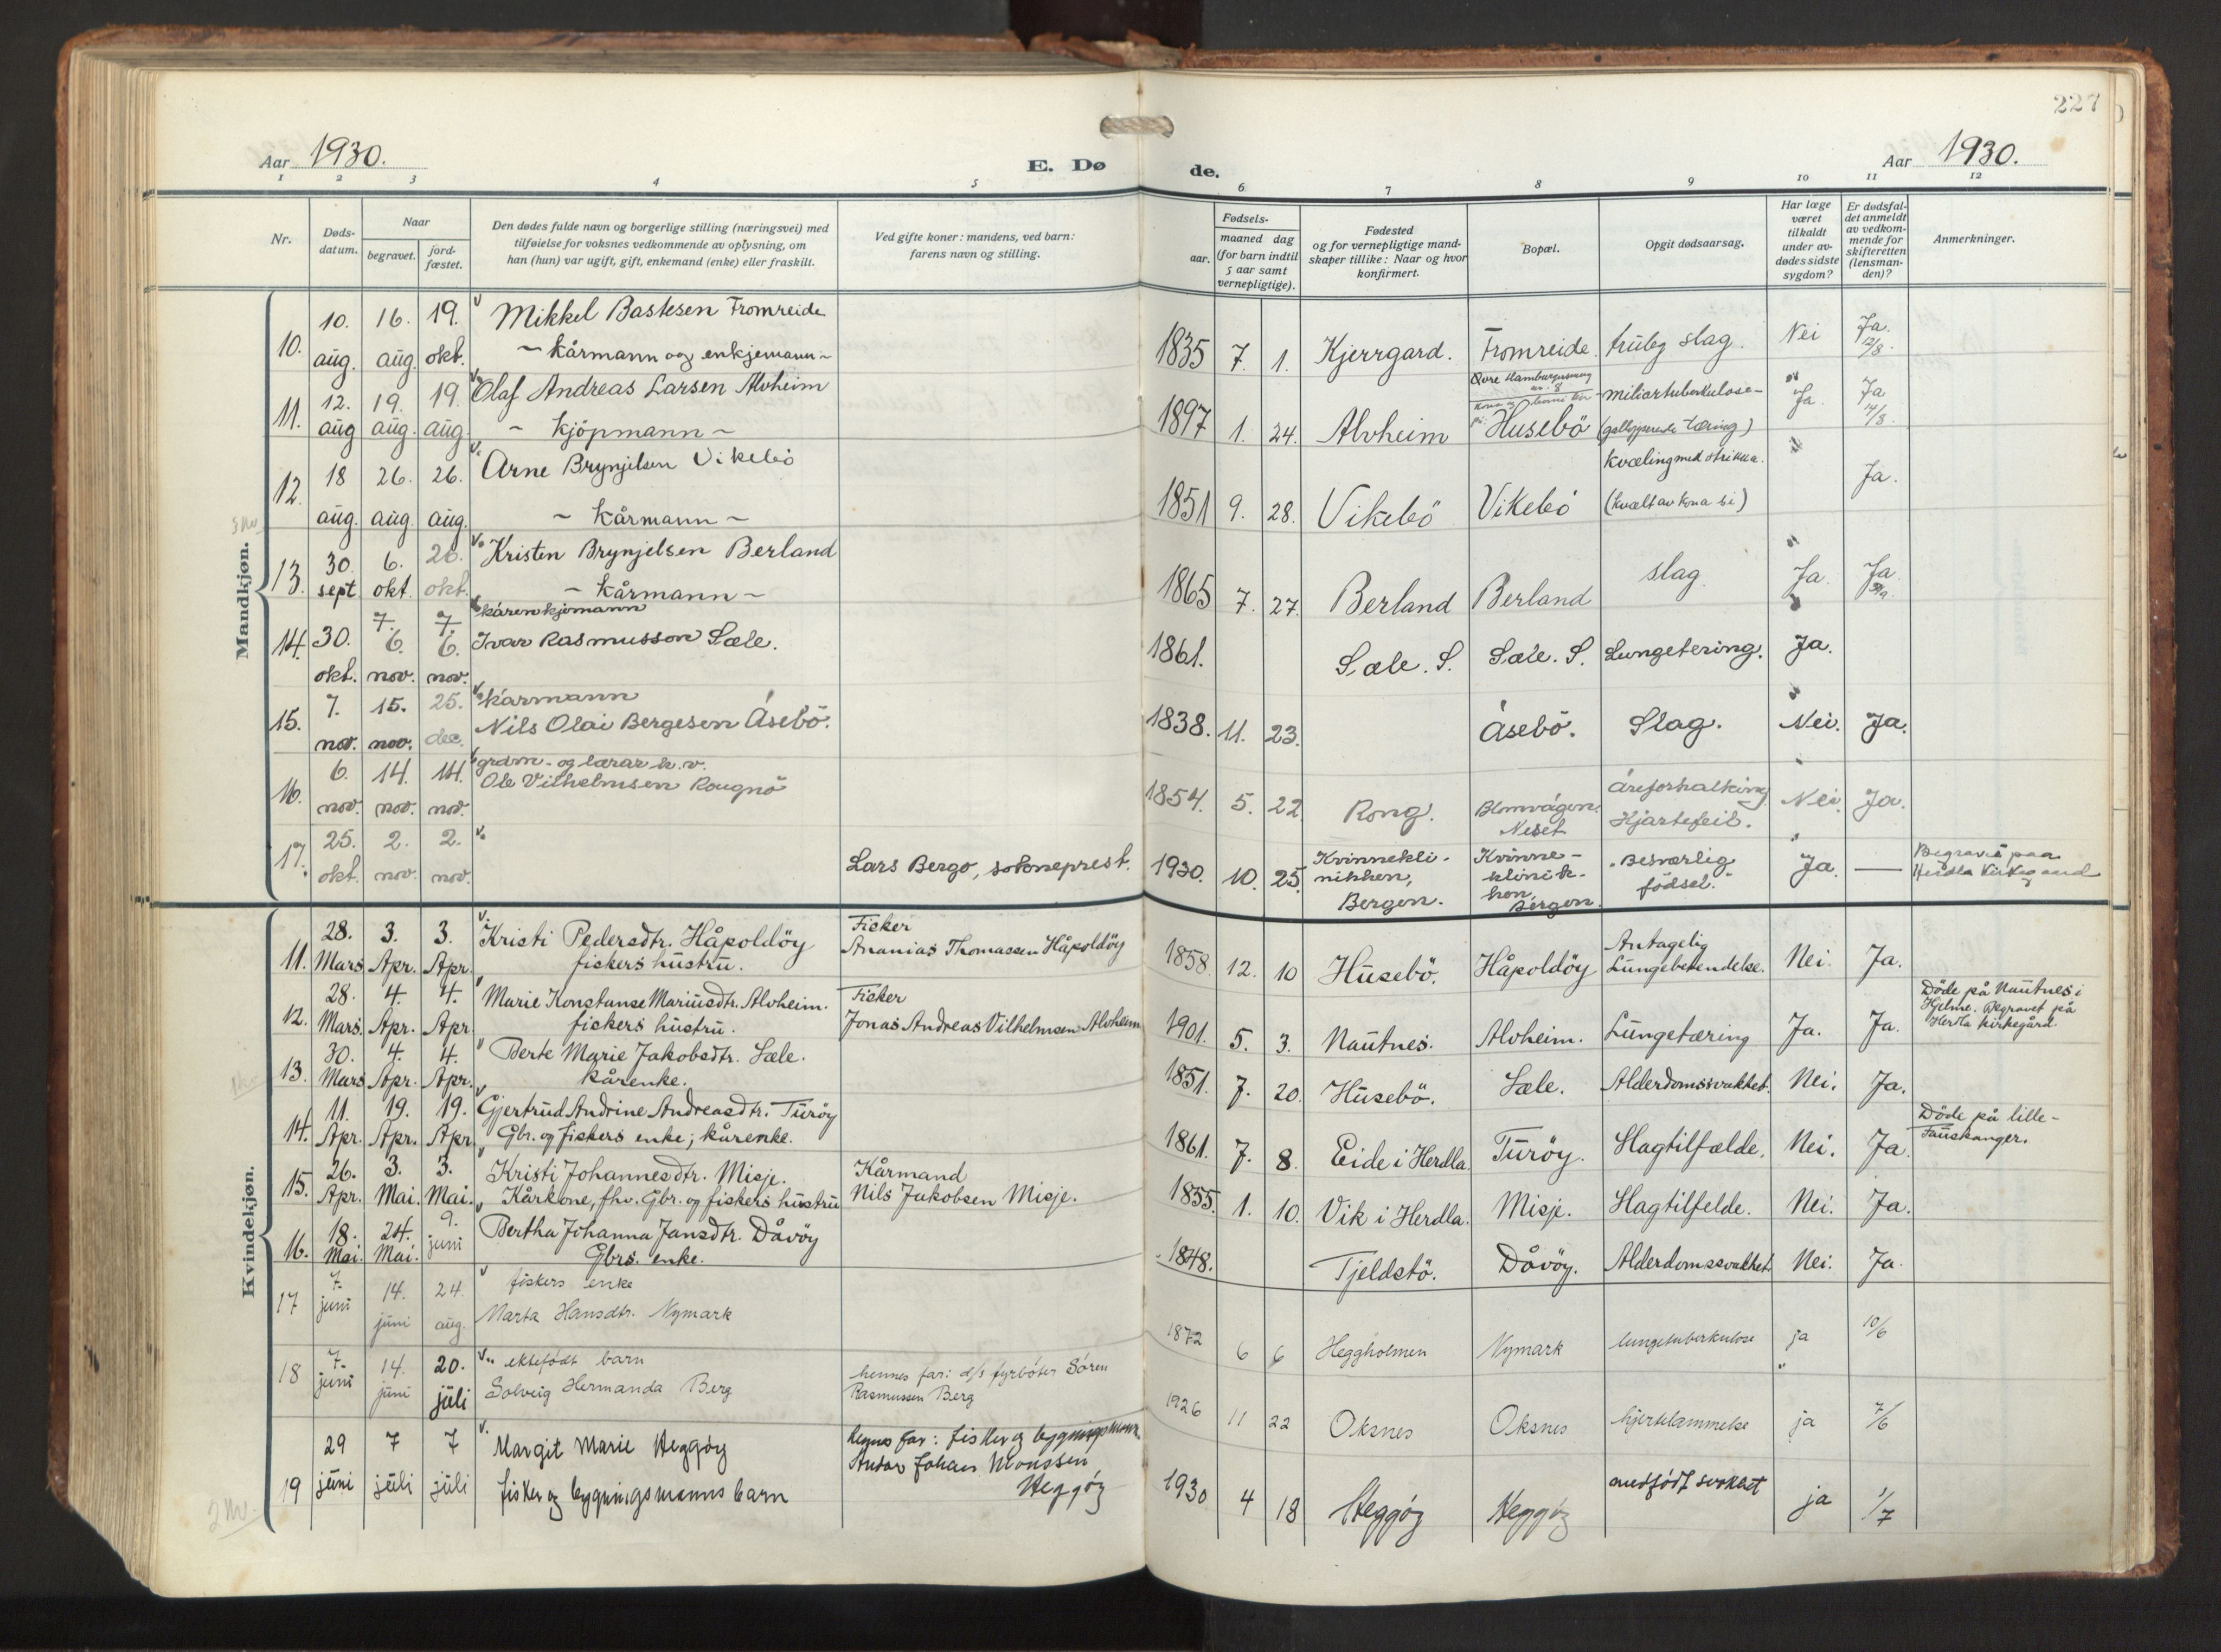 227
Aar 1930.
E. Dø
de.
Aar 1930.
1 2 3 4 5 6 7 8 9 10 11 12
Nr.
Døds-
datum.
Naar
begravet.
jord-
fæstet.
Den dødes fulde navn og borgerlige stilling (næringsvei) med
tilføielse for voksnes vedkommende av oplysning, om
han (hun) var ugift, gift, enkemand (enke) eller fraskilt.
Ved gifte koner: mandens, ved barn:
farens navn og stilling.
Fødsels-
aar.
maaned dag
(for barn indtil
5 aar samt
vernepligtige).
Fødested
og for vernepligtige mand-
skaper tillike: Naar og hvor
konfirmert.
Bopæl.
Opgit dødsaarsag.
Har læge
været
tilkaldt
under av-
dødes sidste
sygdom?
Er dødsfal-
det anmeldt
av vedkom-
mende for
skifteretten
(lensman-
den)?
Anmerkninger.
Mandkjøn.
10. 10. aug. 16. aug. 19. okt. Mikkel Bastesen Fromreide
~ kårmann og enkjemann ~
1835 7. 1. Kjerrgard. Fromreide. truleg slag. Nei Ja. 12/8.
11. 12. aug 19. aug. 19. aug. Olaf Andreas Larsen Alvheim
~ Kjöpmann ~
1897 1. 24. Alvheim Husebö miliartuberkulose (galopperende tæring) Ja. Ja 14/8
12. 18 aug. 26. aug. 26. aug. Arne Brynjelsen Vikebö
~ Kårmann ~
1851 9. 28. Vikebö Vikebö Kvæling med strikka.
(kvælt av kona si) Ja.
13. 30. sept 6. okt. 26. okt. Kristen Brynjelsen Berland
~ Kårmann ~
1865 7. 27. Berland Berland slag. Ja. Ja
14. 30. okt. 7. 6. nov. 7. 6. nov. kårenkjemann
Ivar Rasmusson Sæle.
1861. Sæle. S. Sæle. S. Lungetering. Ja.
15. 7. nov. 15. nov. 25. dec. kårmann
Nils Olai Bergesen Åsebö.
1838. 11. 23. Åsebö. Slag. Nei. Ja.
16. 6. nov. 14. nov. 14. nov. grdm. og lærar
Ole Vilhelmsen Rougnö
1854. 5. 22 Rong. Blomvågen.
Neset Åreforkalking
Hjartefeil. Nei. Ja.
17. 25. okt. 2. nov. 2. nov. Lars Bergo, sokneprest.
1930. 10. 25. Kvinnekli-
nikken,
Bergen. Kvinne-
klinik-
ken,
Bergen. "Besværlig
födsel." Ja. — Begravet paa
Herdla Kirkegaard
Kvindekjøn.
11. 28. Mars 3. Apr. 3. Apr. Kristi Pedersdtr. Håpoldöy
fiskers hustru.
Fisker
Ananias Thomassen Håpoldöy
1858. 12. 10 Husebö. Håpoldöy Antagelig
Lungebetendelse. Nei. Ja.
12. 28. Mars. 4. Apr. 4. Apr Marie Konstanse Mariusdtr. Alvheim.
fiskers hustru.
Fisker
Jonas Andreas Vilhelmsen Alvheim
1901. 5. 3. Nautnes. Alvheim. Lungetæring Ja. Ja. Döde på Nautnes i
Hjelme. Begravet på
Herdla kirkegård.
13. 30. Mars 4. Apr. 4. Apr. Berte Marie Jakobsdtr. Sæle.
Kårenke.
1851. 7. 20. Husebö. Sæle. Alderdomssvakhet. Nei. Ja.
14. 11. Apr. 19. Apr. 19. Apr. Gjertrud Andrine Andreasdtr. Turöy
Gbr. og fiskers enke; kårenke.
1861. 7. 8. Eide i Herdla. Turöy. Slagtilfælde. Nei. Ja Döde på lille-
Fauskanger.
15. 26. Apr. 3. Mai. 3. Mai. Kristi Johannesdtr. Misje.
Kårkone, fhv. Gbr. og fiskers hustru
Kårmand
Nils Jakobsen Misje.
1855. 1. 10. Vik i Herdla. Misje. Slagtilfelde. Nei. Ja.
16. 18. Mai. 24. Mai. 9. juni Bertha Johanna Jansdtr. Dåvöy
Gbrs. enke.
1848. Tjeldstö. Dåvöy. Alderdomssvakhet. Nei. Ja.
17 7. juni 14. juni 24. aug. fiskers enke
Marta Hansdtr. Nymark
1872 6 6 Heggholmen Nymark lungetuberkulose ja 10/6
18 7. juni 14. juni 20. juli ektefödt barn
Solveig Hermanda Berg
hennes far: d/s fyrböter Sören
Rasmussen Berg
1926 11 22 Oksnes Oksnes hjertelammelse ja 7/6
19 29 juni 7 juli 7 juli Margit Marie Heggöy
fisker og bygningsmanns barn
hennes far: fisker og bygningsmann
Johan Monssen
Heggöy
1930 4 18 Heggöy Heggöy medfödt svakhet ja 1/7